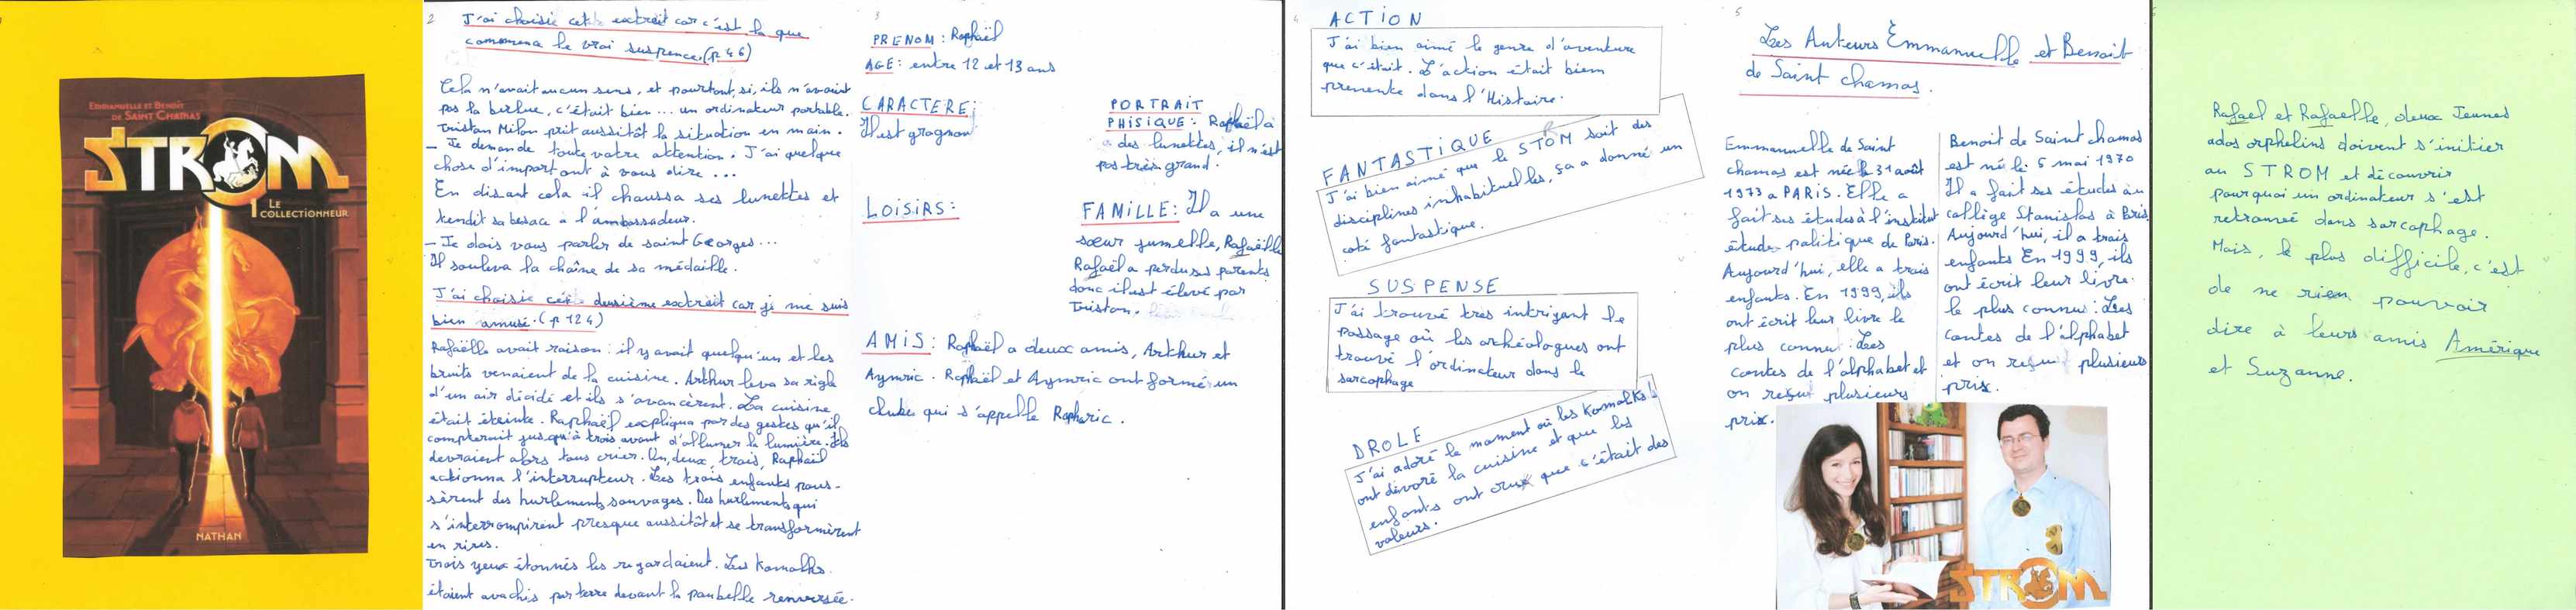 EMMANUELLE ET BENOÎT
DE SAINT CHAMAS
STROM
1 LE
COLLECTIONNEUR
NATHAN
2
J'ai choisie cet extrait car c'est la que
commence le vrai suspence.(p 46)
Cela n'avait aucun sens, et pourtant, si, ils n'avaient
pas la berlue, c'était bien... un ordinateur portable.
Tristan Milan prit aussitôt la situation en main.
- Je demande toute votre attention. J'ai quelque
chose d'important à vous dire ...
En disant cela il chaussa ses lunettes et
tendit sa besace à l'ambassadeur.
- Je dois vous parler de saint Georges...
Il souleva la chaîne de sa médaille.
J'ai choisie cet deusième extrait car je me suis
bien amusé.(p 124)
Rafaëlle avait raison : il y avait quelqu'un et les
bruits venaient de la cuisine. Arthur leva sa règle
d'un air décidé et ils s'avancèrent. La cuisine
était éteinte. Raphaël expliqua par des gestes qu'il
compterait jusqu'à trois avant d'allumer la lumière. Ils
devraient alors tous crier. Un, deux, trois, Raphaël
actionna l'interrupteur. Les trois enfants pous-
sèrent des hurlements sauvages. Des hurlements qui
s'interrompirent presque aussitôt et se transformèrent
en rires.
Trois yeux étonnés les regardaient. Les Komolks
étaient avachis par terre devant la poubelle renversée.
3
PRENOM : Raphaël
AGE : entre 12 et 13 ans
CARACTERE :
Il est grognon
PORTRAIT
PHISIQUE : Raphaël a
des lunettes, il n'est
pas très grand.
LOISIRS :
FAMILLE : Il a une
sœur jumelle, Rafaëlle
Rafaël a perdu ses parents
donc il est élevé par
Tristan.
AMIS : Raphaël a deux amis, Arthur et
Aymric. Raphaël et Aymric ont formé un
clube qui s'appelle Rapharic.
4
ACTION
J'ai bien aimé le genre d'aventure
que c'était. L'action était bien
presente dans l'Histoire.
FANTASTIQUE
J'ai bien aimé que le STOM soit des
R
disciplines inhabituelles, ça a donné un
coté fantastique.
SUSPENSE
J'ai trouvé tres intrigant le
passage où les archéologues ont
trouvé l'ordinateur dans le
sarcophage
DROLE
J'ai adoré le moment où les Komolks
ont dévoré la cuisine et que les
enfants ont crux que s'était des
voleurs.
5
Les Auteurs Emmanuelle et Benoit
de Saint chamas.
Emmanuelle de Saint
chamas est née le 31 août
1973 a PARIS. Elle a
fait ses études à l'institut
étude politique de Paris.
Aujourd'hui, elle a trois
enfants. En 1999, ils
ont écrit leur livre le
plus connu : Les
contes de l'alphabet et
on reçut plusieurs
prix.
Benoit de Saint chamas
est né le 5 mai 1970
Il a fait ses études au
collège Stanislas à Paris.
Aujourd'hui, il a trois
enfants En 1999, ils
ont écrit leur livre
le plus connu : Les
contes de l'alphabet
et on reçut plusieurs
prix.
STROM
Rafael et Rafaelle, deux Jeunes
ados orphelins doivent s'initier
au STROM et découvrir
pourquoi un ordinateur s'est
retrouvé dans sarcophage.
Mais, le plus difficile, c'est
de ne rien pouvoir
dire à leurs amis Amérique
et Suzanne.